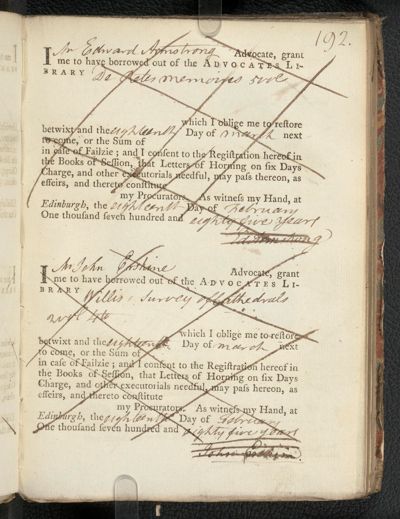 192.
I Mr Edward Armstrong Advocate, grant
me to have borrowed out of the ADVOCATES LI-
BRARY De Retes memoires 5 vol
which I oblige me to restore
betwixt and the eighteenth Day of march next
to come, or the Sum of
in case of Failzie; and I consent to the Registration hereof in
the Books of Session, that Letters of Horning on six Days
Charge, and other executorials needful, may pass thereon, as
effeirs, and thereto constitute
my Procurators. As witness my Hand, at
Edinburgh, the eighteenth Day of February
One thousand seven hundred and eighty five years
I Mr John Erskine Advocate, grant
me to have borrowed out of the ADVOCATES LI-
BRARY Willis's Survey of Cathedrals
2 vol 4to
which I oblige me to restore
betwixt and the eighteenth Day of march next
to come, or the Sum of
in case of Failzie; and I consent to the Registration hereof in
the Books of Session, that Letters of Horning on six Days
Charge, and other executorials needful, may pass hereon, as
effeirs, and thereto constitute
my Procurators. As witness my Hand, at
Edinburgh, the eighteenth Day of February
One thousand seven hundred and eighty five years
John Erskine.